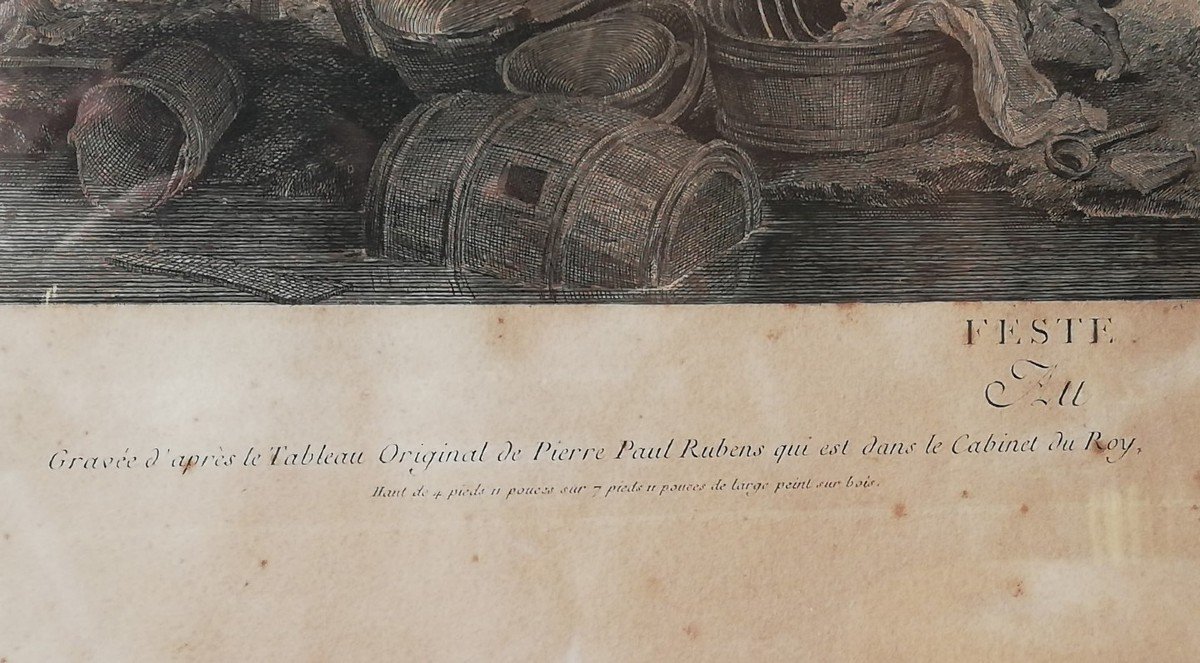 FESTE
Au
Gravée d'après le Tableau Original de Pierre Paul Rubens qui est dans le Cabinet du Roy,
Haut de 4 pieds 11 pouces sur 7 pieds 11 pouces de large peint sur bois.